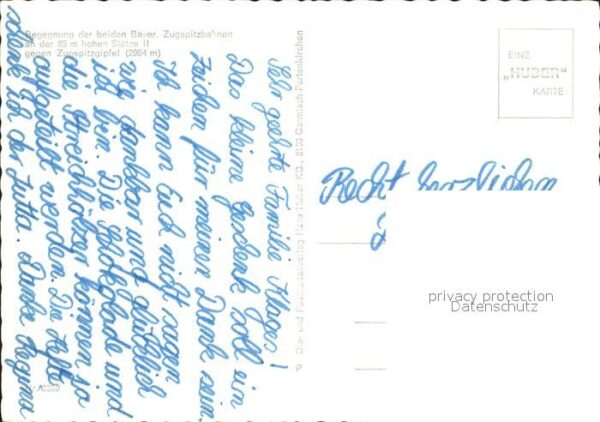 Begegnung der beiden Bayer. Zugspitzbahnen
an der 85 m hohen Stütze II
gegen Zugspitzgipfel (2964 m)
EINE
„HUBER"
KARTE
Sehr geehrte Familie Klages!
Das kleine Gedenk soll ein
Zeichen für meinen Dank sein.
Ich kann Euch nicht sagen
wie dankbar und glücklich
ich bin. Die Schokolade und
die Streichhölzer können so
aufgeteilt werden. Die Hefte
sind für Jutta. Danke Regina
Recht herzlichen
Huber KG., 8100 Garmisch-Partenkirchen
privacy protection
Datenschutz